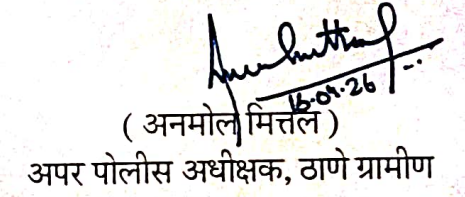 16-04-26
( अनमोल मित्तल )
अपर पोलीस अधीक्षक, ठाणे ग्रामीण